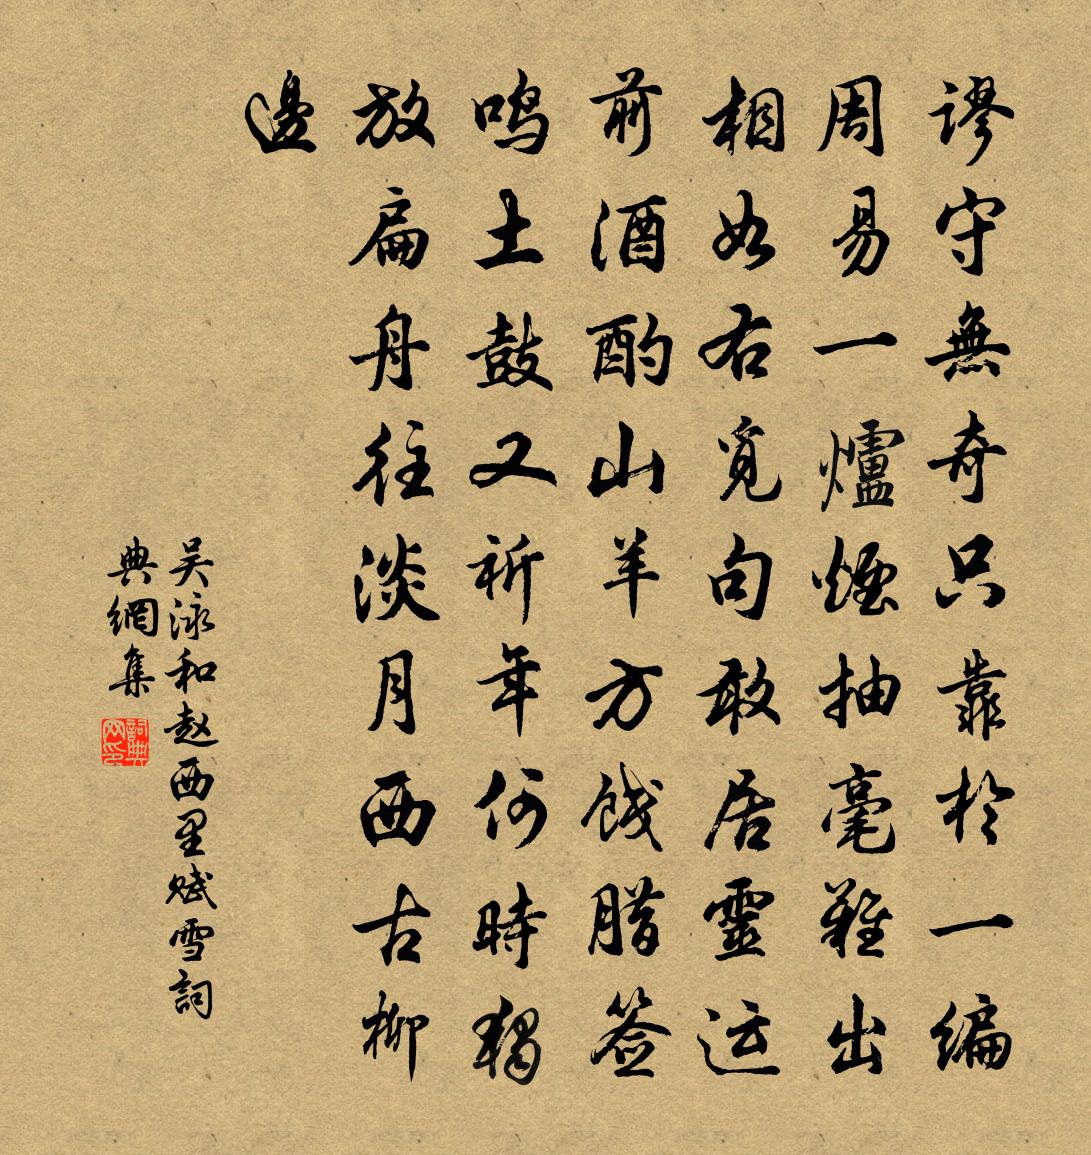 谬守無奇只靠於一編
周易一爐煙抽毫難出
相如右覓句敢居靈运
前酒酌山羊方饯腊签
鸣土鼓又祈年何時獨
放扁舟往淡月西古柳
邊
吴泳和赵西里赋雪詞
典網集
詞典
网印